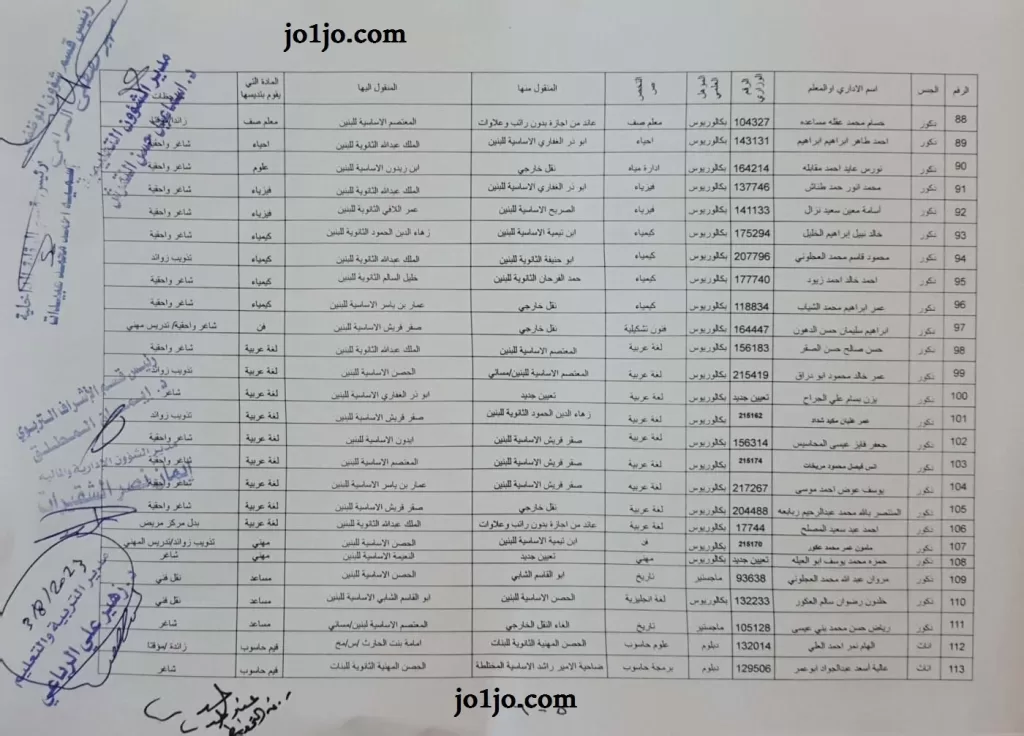 jo1jo.com
الرقم الجنس اسم الاداري أوالمعلم الرقم الوزاري المؤهل العلمي التخصص المنقول منها المنقول اليها المادة التي يقوم بتدريسها
88 ذكور حسام محمد عقله مساعده 104327 بكالوريوس معلم صف عائد من اجازة بدون راتب وعلاوات المعتصم الاساسية للبنين معلم صف
89 ذكور احمد طاهر ابراهيم ابراهيم 143131 بكالوريوس احياء ابو ذر الغفاري الاساسية للبنين الملك عبدالله الثانوية للبنين احياء شاغر واحقية
90 ذكور نورس عايد احمد مقابله 164214 بكالوريوس ادارة مياه نقل خارجي ابن زيدون الاساسية للبنين علوم شاغر واحقية
91 ذكور محمد انور حمد طناش 137746 بكالوريوس فيزياء ابو ذر الغفاري الاساسية للبنين الملك عبدالله الثانوية للبنين فيزياء شاغر واحقية
92 ذكور أسامة معين سعيد نزال 141133 بكالوريوس فيزياء الصريح الاساسية للبنين عمر اللافي الثانوية للبنين فيزياء شاغر واحقية
93 ذكور خالد نبيل ابراهيم الخليل 175294 بكالوريوس كيمياء ابن تيمية الاساسية للبنين زهاء الدين الحمود الثانوية للبنين كيمياء شاغر واحقية
94 ذكور محمود قاسم محمد العجلوني 207796 بكالوريوس كيمياء ابو حنيفة الثانوية للبنين الملك عبدالله الثانوية للبنين كيمياء تذويب زوائد
95 ذكور احمد خالد احمد زيود 177740 بكالوريوس كيمياء حمد الفرحان الثانوية للبنين خليل السالم الثانوية للبنين كيمياء شاغر واحقية
96 ذكور عمر ابراهيم محمد الشياب 118834 بكالوريوس كيمياء نقل خارجي عمار بن ياسر الاساسية للبنين كيمياء شاغر واحقية
97 ذكور ابراهيم سليمان حسن الدهون 164447 بكالوريوس فنون تشكيلية نقل خارجي صقر قريش الاساسية للبنين فن شاغر واحقية/ تدريس مهني
98 ذكور حسن صالح حسن الصقر 156183 بكالوريوس لغة عربية المعتصم الاساسية للبنين الملك عبدالله الثانوية للبنين لغة عربية شاغر واحقية
99 ذكور عمر خالد محمود ابو دراق 215419 بكالوريوس لغة عربية المعتصم الاساسية للبنين/مسائي الحصن الاساسية للبنين لغة عربية تذويب زوائد
100 ذكور يزن بسام علي الجراح تعيين جديد بكالوريوس لغة عربية تعيين جديد ابو ذر الغفاري الاساسية للبنين لغة عربية شاغر
101 ذكور عمر عليان مكيد شداد 215162 بكالوريوس لغة عربية زهاء الدين الحمود الثانوية للبنين صقر قريش الاساسية للبنين لغة عربية تذويب زوائد
102 ذكور جعفر فايز عيسى المحاسيس 156314 بكالوريوس لغة عربية صقر قريش الاساسية للبنين ايدون الاساسية للبنين لغة عربية شاغر واحقية
103 ذكور انس فيصل محمود مريخات 215174 بكالوريوس لغة عربية صقر قريش الاساسية للبنين المعتصم الاساسية للبنين لغة عربية شاغر واحقية
104 ذكور يوسف عوض احمد موسى 217267 بكالوريوس لغة عربية صقر قريش الاساسية للبنين عمار بن ياسر الاساسية للبنين لغة عربية شاغر واحقية
105 ذكور المنتصر بالله محمد عبدالرحيم ربابعه 204488 بكالوريوس لغة عربية نقل خارجي صقر قريش الاساسية للبنين لغة عربية شاغر واحقية
106 ذكور احمد عيد سعيد المصلح 17744 بكالوريوس لغة عربية عائد من اجازة بدون راتب وعلاوات الملك عبدالله الثانوية للبنين لغة عربية بدل مركز مريض
107 ذكور مامون عمر محمد عكور 215170 بكالوريوس فن ابن تيمية الاساسية للبنين الحصن الاساسية للبنين مهني تذويب زوائد/تدريس المهني
108 ذكور حمزه محمد يوسف ابو العيله تعيين جديد بكالوريوس مهني تعيين جديد النعيمة الاساسية للبنين مهني شاغر
109 ذكور مروان عبد الله محمد العجلوني 93638 ماجستير تاريخ ابو القاسم الشابي الحصن الاساسية للبنين مساعد نقل فني
110 ذكور خلدون رضوان سالم العكور 132233 بكالوريوس لغة انجليزية الحصن الاساسية للبنين ابو القاسم الشابي الاساسية للبنين مساعد نقل فني
111 ذكور رياض حسن محمد بني عيسى 105128 ماجستير تاريخ الغاء النقل الخارجي المعتصم الاساسية للبنين/مسائي مساعد شاغر
112 اناث الهام نمر احمد العلي 132014 دبلوم علوم حاسوب الحصن المهنية الثانوية للبنات امامة بنت الحارث /س/مخ قيم حاسوب زائدة /مؤقتا
113 اناث عالية أسعد عبدالجواد ابوعمر 129506 دبلوم برمجة حاسوب ضاحية الامير راشد الاساسية المختلطة الحصن المهنية الثانوية للبنات قيم حاسوب شاغر
رئيس قسم شؤون
مدير الشؤون
رئيس قسم الإشراف التربوي
مدير الشؤون الإدارية والمالية
3/8/2023
مدير التربية والتعليم
jo1jo.com